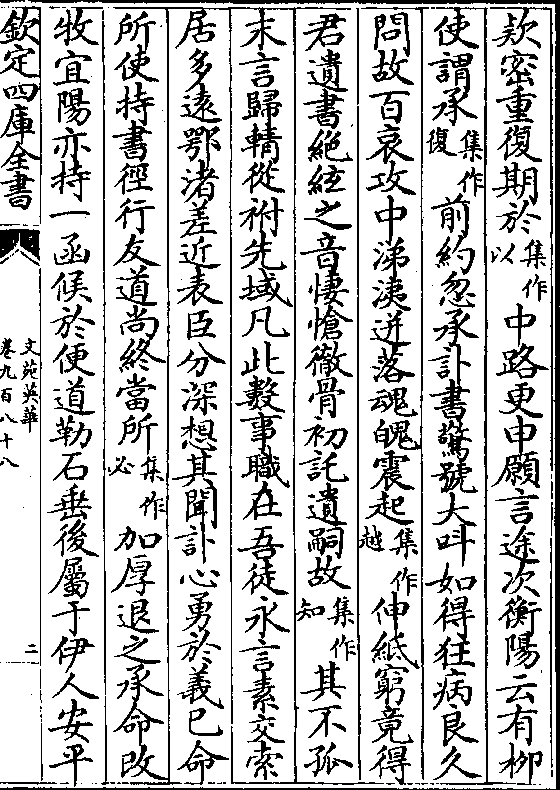 欵密重復期於集作以中路更申願言途次衡陽云有栁
使謂承集作復前約忽承訃書驚號大呌如得狂病良久
問故百哀攻中涕洟迸落魂魄震起集作越伸紙窮竟得
君遺書絶絃之音悽愴徹骨初託遺嗣故集作知其不孤
末言歸輤從祔先域凡此數事職在吾徒永言素交索
居多逺鄂渚差近表臣分深想其聞訃心勇於義已命
所使持書徑行友道尚終當所集作必加厚退之承命改
牧宜陽亦持一函候於便道勒石垂後屬于伊人安平
欽定四庫全書
文苑英華
卷九百八十八
二